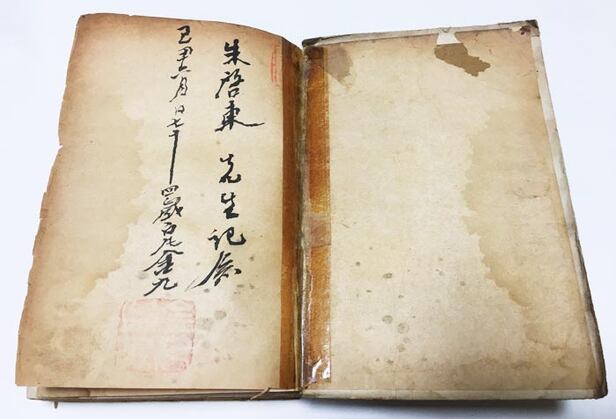 朱啓東 先生記念
己丑六月 日七十四歲白凡金九